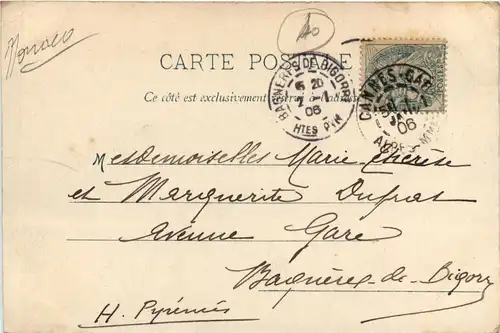 Monaco
40
CARTE POSTALE
Ce côté est exclusivement réservé à l'adresse
BAGNÈRES-DE-BIGORRE
6 20
7 -1
06
HTES PYR
CANNES-GARE
06
ALPES-MMES
Mesdemoiselles Marie-Thérèse
et Marguerite Duprat
Avenue Gare
Bagnères-de-Bigorre
H. Pyrénées